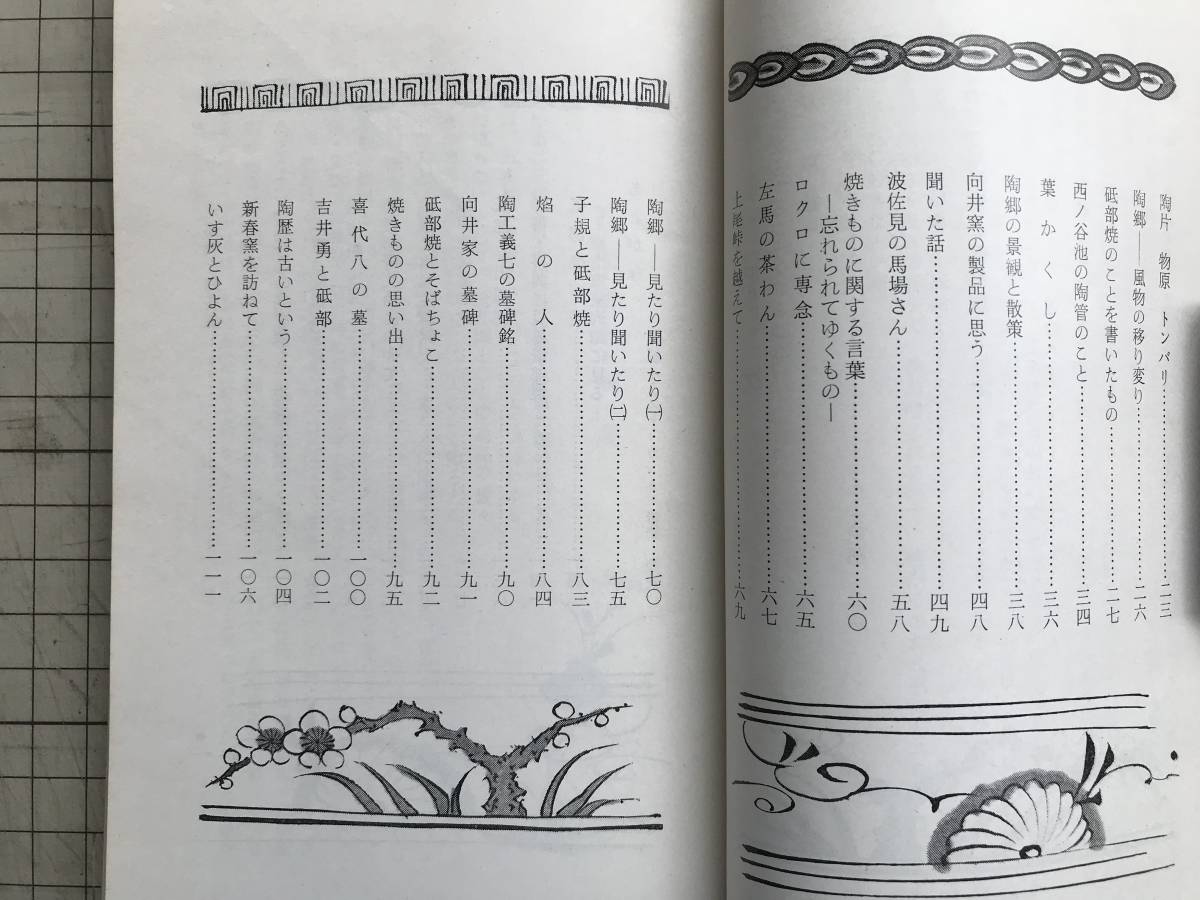 陶片 物原 トンバリ……………………二三
陶郷――風物の移り変り……………………二六
砥部焼のことを書いたもの……………………二七
西ノ谷池の陶管のこと……………………三四
葉かくし……………………三六
陶郷の景観と散策……………………三八
向井窯の製品に思う……………………四八
聞いた話……………………四九
波佐見の馬場さん……………………五八
焼きものに関する言葉……………………六〇
―忘れられてゆくもの―
ロクロに専念……………………六五
左馬の茶わん……………………六七
上尾峠を越えて……………………六九
陶郷――見たり聞いたり㈠……………………七〇
陶郷――見たり聞いたり㈡……………………七五
子規と砥部焼……………………八三
焰の人……………………八四
陶工義七の墓碑銘……………………九〇
向井家の墓碑……………………九一
砥部焼とそばちょこ……………………九二
焼きものの思い出……………………九五
喜代八の墓……………………一〇〇
吉井勇と砥部……………………一〇二
陶歴は古いという……………………一〇四
新春窯を訪ねて……………………一〇六
いす灰とひよん……………………一一一